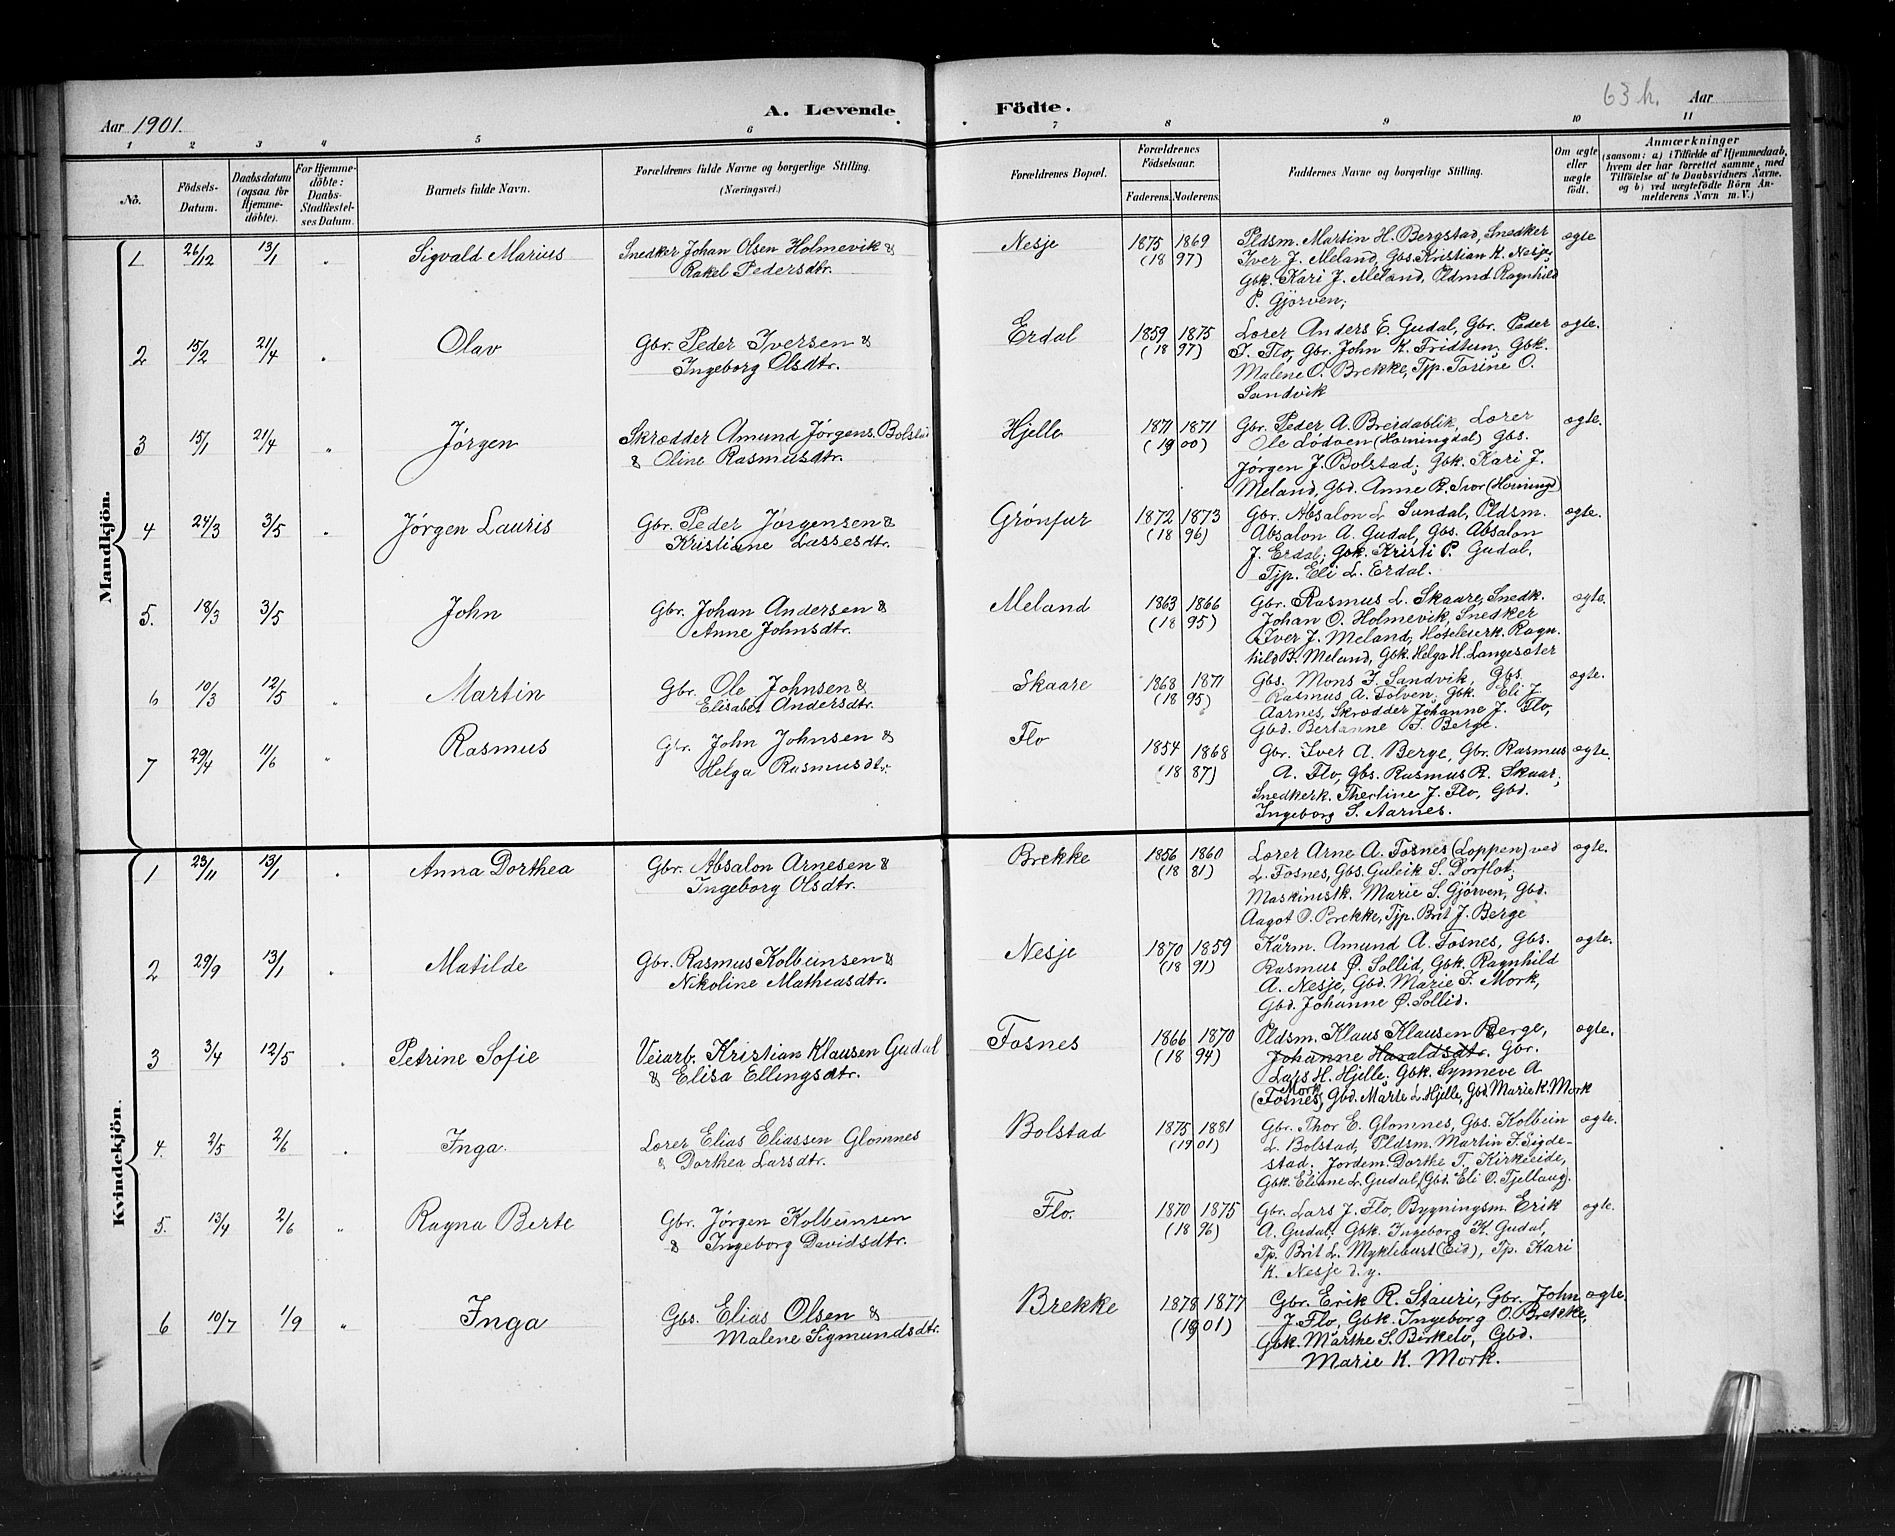 Aar 1901.
A. Levende
Födte.
63 h.
Aar
1 2 3 4 5 6 7 8 9 10 11
No.
Födsels-Datum.
Daabsdatum (ogsaa for Hjemmedöbte).
For Hjemmedöbte: Daabs-Stadfæstelses Datum.
Barnets fulde Navn.
Forældrenes fulde Navne og borgerlige Stilling.
(Næringsvei.)
Forældrenes Bopæl.
Forældrenes Födselsaar.
Faderens. Moderens.
Faddernes Navne og borgerlige Stilling.
Om ægte eller uægte födt.
Anmærkninger
(saasom: a) i Tilfælde af Hjemmedaab, hvem der har forrettet samme, med Tilföielse af to Daabsvidners Navne. og b) ved uægtefödte Börn Anmelderens Navn m. V.)
Mandkjön.
1 26/12 13/1 " Sigvald Marius Snedker Johan Olsen Holmevik & Nesje 1875 1869 Pldsm. Martin H. Bergstad, Snedker ægte
Rakel Pedersdtr. (1897) Iver J. Meland, Gbs Kristian K. Nesje;
Gbk. Kari J. Meland, Pldmd Ragnhild
P. Gjörven;
2 15/2 21/4 " Olav Gbr. Peder Iversen & Erdal 1859 1875 Lærer Anders E. Gudal, Gbr. Peder ægte.
Ingeborg Olsdtr. (1897) J. Flo, Gbr. John K. Fridtun, Gbk.
Malene O. Brekke, Tjp. Tosine O.
Sandvik
3 15/1 21/4 " Jørgen Skrædder Amund Jørgens. Bolstad Hjelle 1871 1871 Gbr. Peder A. Breidablik, Lærer ægte.
& Oline Rasmusdtr. (1900) Ole Lødøen (Horningdal) Gbs.
Jørgen J. Bolstad; Gbk. Kari J.
Meland, Gbd. Anne R. Svor (Horningd)
4 24/3 3/5 " Jørgen Lauris Gbr. Peder Jørgensen & Grönfur 1872 1873 Gbr. Absalon L. Sundal, Pldsm. ægte.
Kristiane Lassesdtr. (1896) Absalon A. Gudal, Gbs. Absalon
J. Erdal; Gbk. Kristi P. Gudal,
Tjp. Eli L. Erdal.
5. 18/3 3/5 John Gbr. Johan Andersen & Meland 1863 1866 Gbr. Rasmus L. Skaare, Snedk. ægte.
Anne Johnsdtr. (1895) Johan O. Holmevik, Snedker
Iver J. Meland, Hoteleierk. Ragn-
hild B. Meland, Gbk. Helga H. Langesæter
6 10/3 12/5 " Martin Gbr. Ole Johnsen & Skaare 1868 1871 Gbs. Mons J. Sandvik, Gbs. ægte.
Elisabet Andersdtr. (1895) Rasmus A. Tolven; Gbk. Eli J.
Aarnes, Skrædder Johanne J. Flo,
Gbd. Bertanne J. Berge.
7 29/4 11/6 " Rasmus Gbr. John Johnsen & Flo 1854 1868 Gbr. Iver A. Berge, Gbr. Rasmus ægte.
Helga Rasmusdtr. (1887) A. Flo, Gbs. Rasmus R. Skaar;
Snedkerk. Therline J. Flo, Gbd.
Ingeborg S. Aarnes.
Kvindekjön.
1 23/11 13/1 " Anna Dorthea Gbr. Absalon Arnesen & Brekke 1856 1860 Lærer Arne A. Fosnes (Loppen) ved ægte.
Ingeborg Olsdtr. (1881) L. Fosnes, Gbs. Guleik S. Dorflot;
Maskinistk. Marie S. Gjörven, Gbd.
Aagot O. Brekke, Tjp. Brit J. Berge
2 29/9 13/1 " Matilde Gbr. Rasmus Kolbeinsen & Nesje 1870 1859 Kårm. Amund A. Fosnes, Gbs. ægte.
Nikoline Mathiasdtr. (1891) Rasmus Ø. Sollid, Gbk. Ragnhild
A. Nesje, Gbd. Marie J. Mork,
Gbd. Johanne Ø. Sollid.
3 3/4 12/5 " Petrine Sofie Veiarb. Kristian Klausen Gudal Fosnes 1866 1870 Pldsm. Klaus Klausen Berge, ægte.
& Elisa Ellingsdtr. (1894) Johanne Haraldsdtr. Gbr.
Lars H. Hjelle; Gbk. Synneve A
Mork
(Fosnes) Gbd. Marte L. Hjelle, Gbd. Marie K. Mork
4. 2/5 2/6 " Inga. Lærer Elias Eliassen Glomnes Bolstad 1875 1881 Gbr. Thor E. Glomnes, Gbs. Kolbein ægte.
& Dorthea Larsdtr. (1901) L. Bolstad, Pldsm. Martin J. Sigde-
stad; Jordem. Dorthe T. Kirkeeide,
Gbk. Eliane L. Gudal, (Gbd. Eli O. Tjellaug).
5. 13/4 2/6 " Ragna Berte Gbr. Jørgen Kolbeinsen Flo. 1870 1875 Gbr. Lars J. Flo, Bygningsm. Erik ægte.
& Ingeborg Davidsdtr. (1896) A. Gudal; Gbk. Ingeborg K. Gudal,
Tp. Brit L. Myklebust (Eid), Tp. Kari
K. Nesje d.y.
6 10/7 1/9 " Inga Gbs. Elias Olsen & Brekke 1878 1877 Gbr. Erik R. Stauri, Gbr. John ægte.
Malene Sigmundsdtr. (1901) J. Flo, Gbk. Ingeborg O. Brekke,
Gbk. Marthe S. Birkelo, Gbd.
Marie K. Mork.